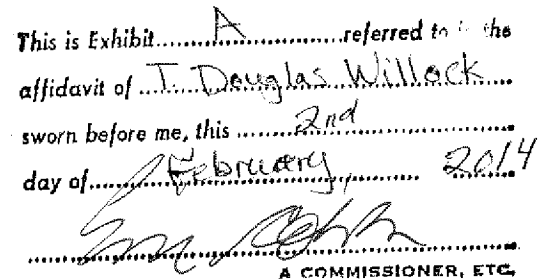 This is Exhibit A referred to in the
affidavit of T. Douglas Willock
sworn before me, this 2nd
day of February, 2014
A COMMISSIONER, ETC.